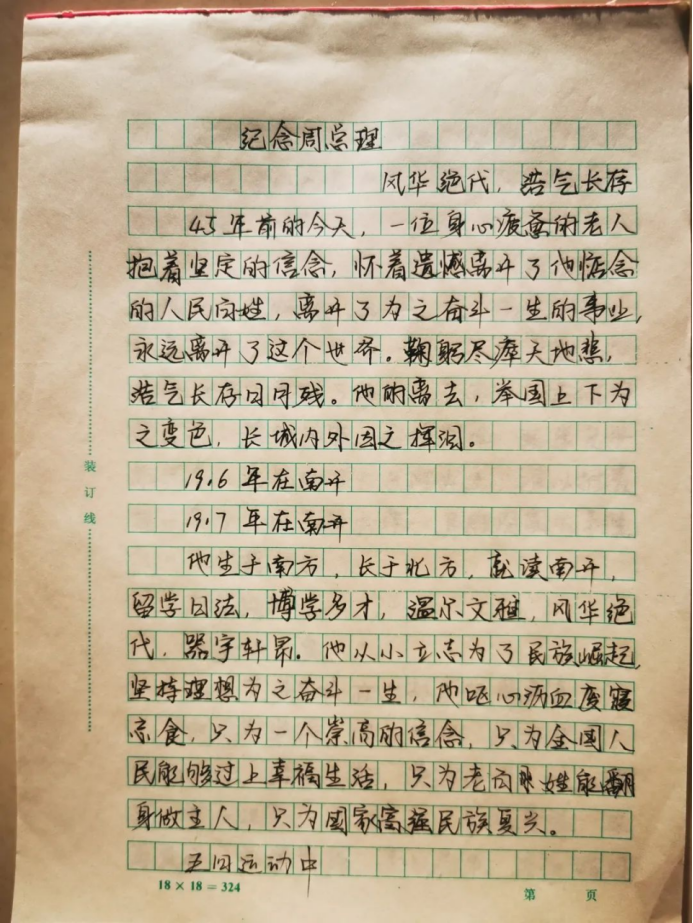 纪念周总理
风华绝代，浩气长存
45年前的今天，一位身心疲惫的老人
抱着坚定的信念，怀着遗憾离开了他惦念
的人民百姓，离开了为之奋斗一生的事业，
永远离开了这个世界。鞠躬尽瘁天地愁，
浩气长存日月残。他的离去，举国上下为
之变色，长城内外因之挥泪。
19.6年在南开
19.7年在南开
他生于南方，长于北方，就读南开，
留学日法，博学多才，温尔文雅，风华绝
代，器宇轩昂。他从小立志为了民族崛起，
坚持理想为之奋斗一生，他呕心沥血废寝
忘食，只为一个崇高的信念，只为全国人
民能够过上幸福生活，只为老百姓能翻
身做主人，只为国家富强民族复兴。
五四运动中
装订线
18×18=324
第 页